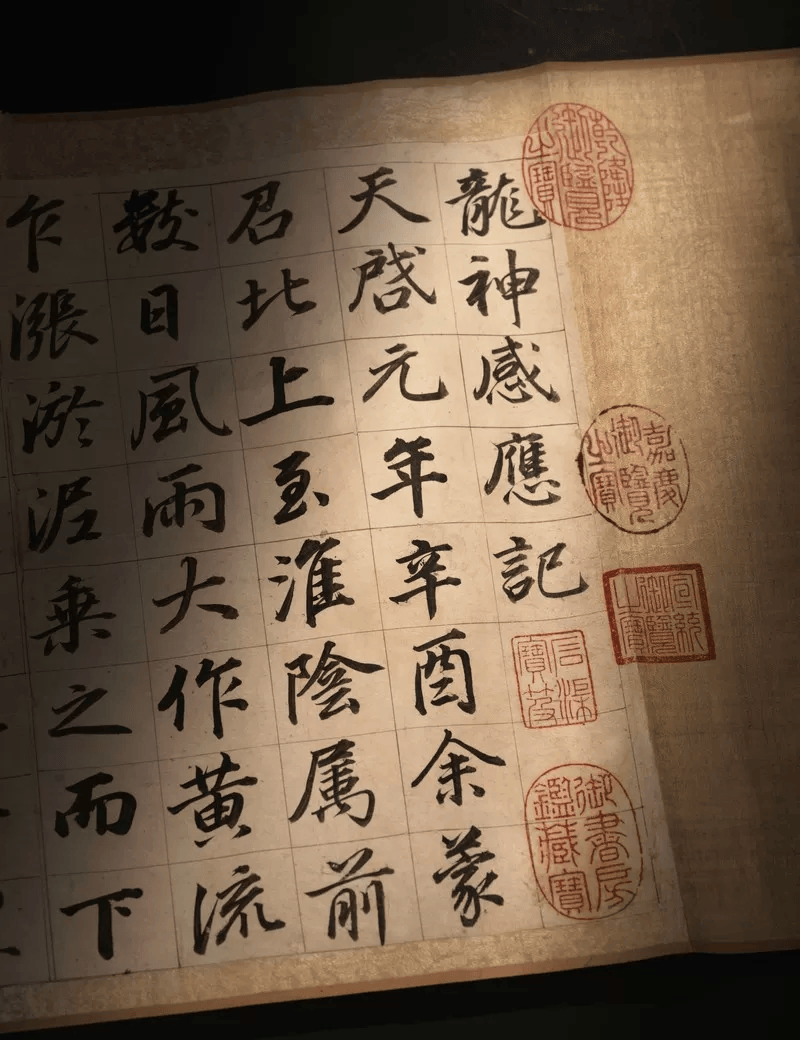 龍神感應記
天啓元年辛酉余蒙
召北上至淮陰属前
數日風雨大作黄流
乍漲淤泥乗之而下
乾隆御覽之寶
嘉慶御覽之寶
宣統御覽之寶
御書房鑑藏寶